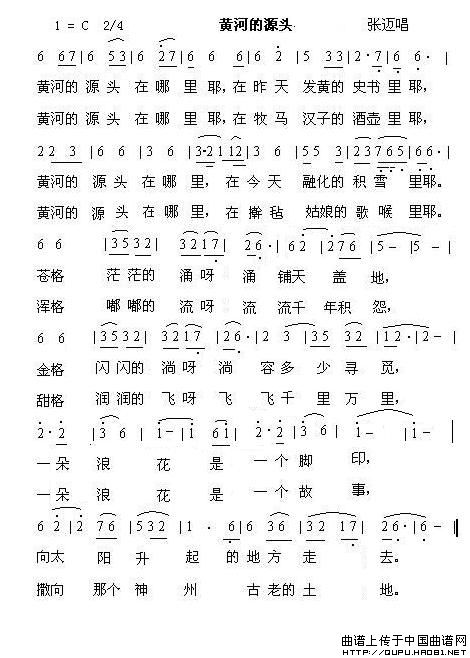 1 = C 2/4 黄河的源头 张迈唱
6 67 | 6 53 | 6 27 | 6 6 | 6 6 2 | 5 33 | 2·7 | 6·
黄河的 源 头 在 哪 里 耶,在 昨 天 发黄的 史书 里 耶,
黄河的 源 头 在 哪 里 耶,在 牧 马 汉子的 酒壶 里 耶,
22 3 | 6 6 | 3 6 | 3·2112 | 3 6 | 5 53 | 237765 | 66·
黄河的 源 头 在 哪 里, 在 今 天 融化的 积 雪 里耶。
黄河的 源 头 在 哪 里, 在 擀 毡 姑娘的 歌 喉 里耶.
6 6 | 3532 | 3217 | 26· | 62 276 | 5- | 5-
苍格 茫茫的 涌呀 涌 铺天 盖 地,
浑格 嘟嘟的 流呀 流 流千 年积 怨,
6 6 | 3532 | 3217 | 26· | 2 3 35 | 32 | 2- | 2-
金格 闪闪的 淌呀 淌 容多 少 寻 觅,
甜格 润润的 飞呀 飞 飞千 里 万 里,
2·2 | 3 6 | 1- | 1 61 | 2·2 | 3 6 | 1- | 1-
一朵 浪 花 是 一个 脚 印,
一朵 浪 花 是 一个 故 事,
6 2 | 2 76 | 532 | 1· 6 | 6 36 | 32 17 | 26· | 6- ‖
向太 阳 升 起 的 地方 走 去。
撒向 那个 神 州 古 老的 土 地。
曲谱上传于中国曲谱网
HTTP://QUPU.HAO81.NET